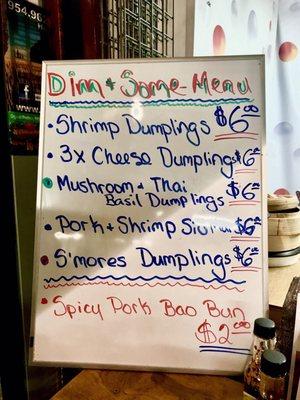 954.96
Dim + Some Menu
• Shrimp Dumplings $6.00
• 3x Cheese Dumplings $6.00
• Mushroom + Thai
Basil Dumplings $6.00
• Pork + Shrimp $6.00
• S'mores Dumplings $6.00
• Spicy Pork Bao Bun
$2.00